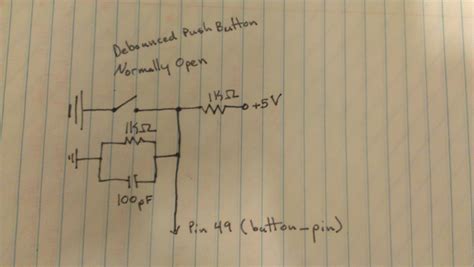 Debounced Push Button
Normally Open
1KΩ
+5V
1KΩ
100pF
Pin 49 (button-pin)